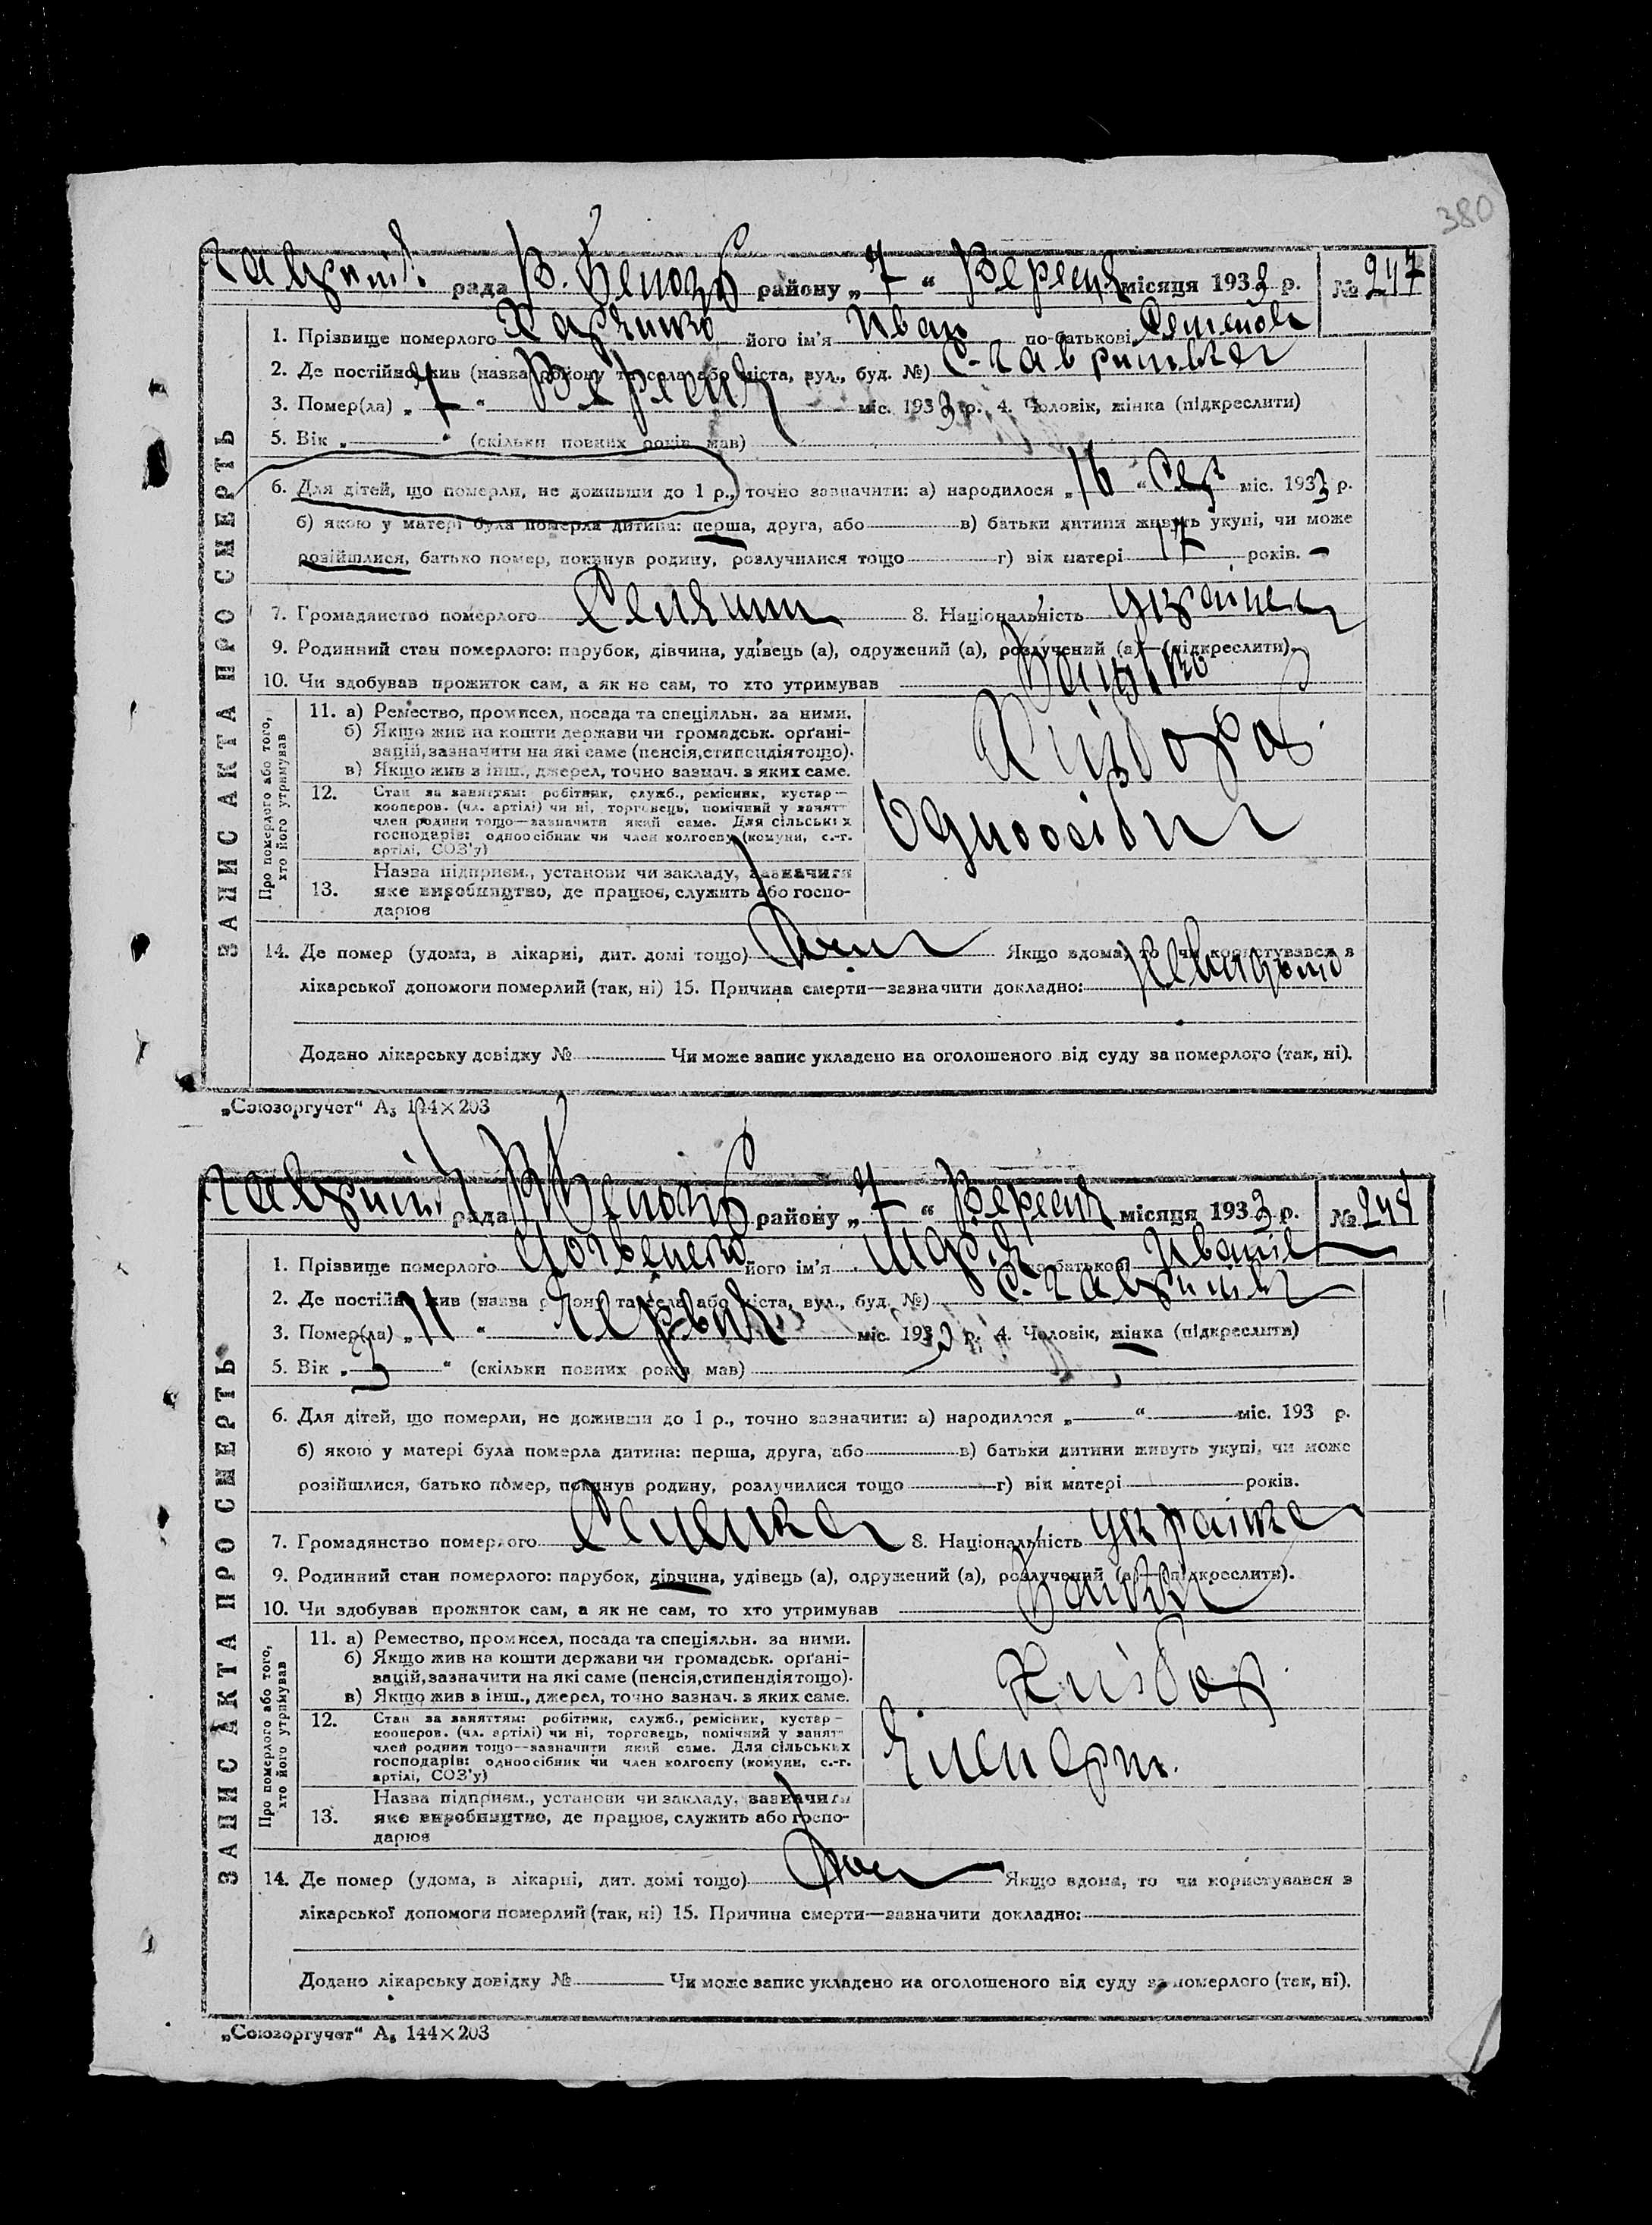 380
рада В. район у „ 7 “ Вересня місяця 1933 р. № 247
ЗАПИС АКТА ПРО СМЕРТЬ
1. Прізвище померлого Харченко його ім'я Иван по-батькові
2. Де постійно жив (назва району та села або міста, вул., буд. №) С. Гаврилівка
3. Помер(ла) „ 7 “ Вересня міс. 1933 р. 4. Чоловік, жінка (підкреслити)
5. Вік „ “ (скільки повних років мав)
6. Для дітей, що померли, не доживши до 1 р., точно зазначити: а) народилося „ 16 “ Серп міс. 1933 р.
б) якою у матері була померла дитина: перша, друга, або в) батьки дитини живуть укупі, чи може
розійшлися, батько помер, покинув родину, розлучилися тощо г) вік матері 17 років.
7. Громадянство померлого Селянин 8. Національність українец
9. Родинний стан померлого: парубок, дівчина, удівець (а), одружений (а), розлучений (а)—(підкреслити).
10. Чи здобував прожиток сам, а як не сам, то хто утримував Батько
Про померлого або того, хто його утримував
11. а) Ремество, промисел, посада та спеціяльн. за ними. Хлібороб
б) Якщо жив на кошти держави чи громадськ. органі-
зацій, зазначити на які саме (пенсія, стипендія тощо).
в) Якщо жив з інш., джерел, точно зазнач. з яких саме.
12. Стан за заняттям: робітник, служб., ремісник, кустар— Одноосібн
кооперов. (чл. артілі) чи ні, торговець, помічний у занятт
член родини тощо—зазначити який саме. Для сільських
господарів: одноосібник чи член колгоспу (комуни, с.-г.
артілі, СОЗ'у)
13. Назва підприєм., установи чи закладу, зазначити
яке виробництво, де працює, служить або госпо-
дарює
14. Де помер (удома, в лікарні, дит. домі тощо) дома Якщо вдома, то чи користувався в
лікарської допомоги померлий (так, ні) 15. Причина смерти—зазначити докладно:
Додано лікарську довідку № Чи може запис укладено на оголошеного від суду за померлого (так, ні).
„Союзоргучет“ А₅ 144×203
рада району „ 7 “ Вересня місяця 1933 р. № 248
ЗАПИС АКТА ПРО СМЕРТЬ
1. Прізвище померлого його ім'я Марія по-батькові Иванів
2. Де постійно жив (назва району та села або міста, вул., буд. №) С. Гаврилівк
3. Помер(ла) „ 11 “ Червня міс. 1933 р. 4. Чоловік, жінка (підкреслити)
5. Вік „ 3 “ (скільки повних років мав)
6. Для дітей, що померли, не доживши до 1 р., точно зазначити: а) народилося „ “ міс. 193 р.
б) якою у матері була померла дитина: перша, друга, або в) батьки дитини живуть укупі, чи може
розійшлися, батько помер, покинув родину, розлучилися тощо г) вік матері років.
7. Громадянство померлого Селянка 8. Національність українка
9. Родинний стан померлого: парубок, дівчина, удівець (а), одружений (а), розлучений (а)—(підкреслити).
10. Чи здобував прожиток сам, а як не сам, то хто утримував Батьки
Про померлого або того, хто його утримував
11. а) Ремество, промисел, посада та спеціяльн. за ними. Хлібор.
б) Якщо жив на кошти держави чи громадськ. органі-
зацій, зазначити на які саме (пенсія, стипендія тощо).
в) Якщо жив в інш., джерел, точно зазнач. з яких саме.
12. Стан за заняттям: робітник, служб., ремісник, кустар— Член арт.
кооперов. (чл. артілі) чи ні, торговець, помічний у занятт
член родини тощо—зазначити який саме. Для сільських
господарів: одноосібник чи член колгоспу (комуни, с.-г.
артілі, СОЗ'у)
13. Назва підприєм., установи чи закладу, зазначити
яке виробництво, де працює, служить або госпо-
дарює
14. Де помер (удома, в лікарні, дит. домі тощо) дома Якщо вдома, то чи користувався в
лікарської допомоги померлий (так, ні) 15. Причина смерти—зазначити докладно:
Додано лікарську довідку № Чи може запис укладено на оголошеного від суду за померлого (так, ні).
„Союзоргучет“ А₅ 144×203